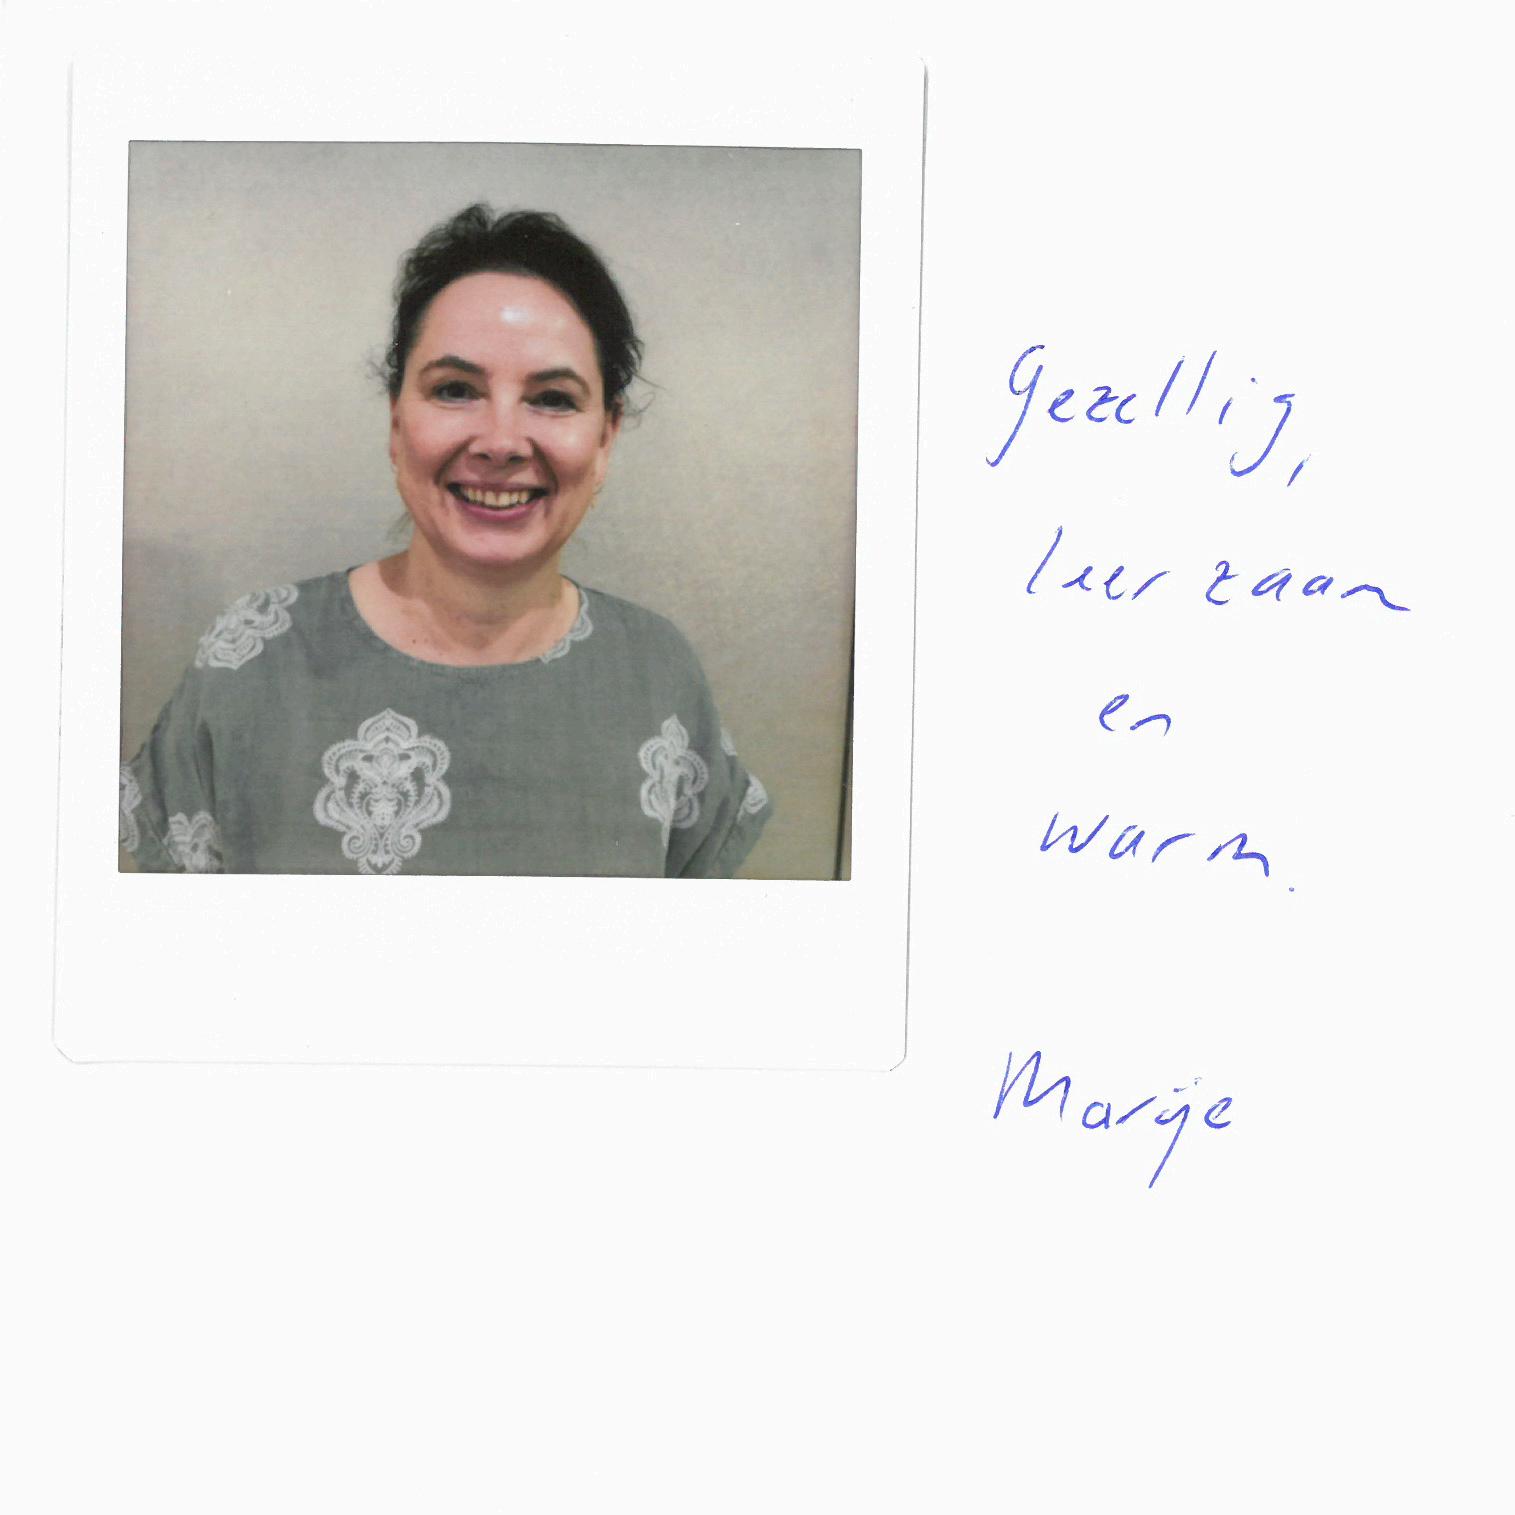 Gezellig,
leerzaam
en
warm.
Marije